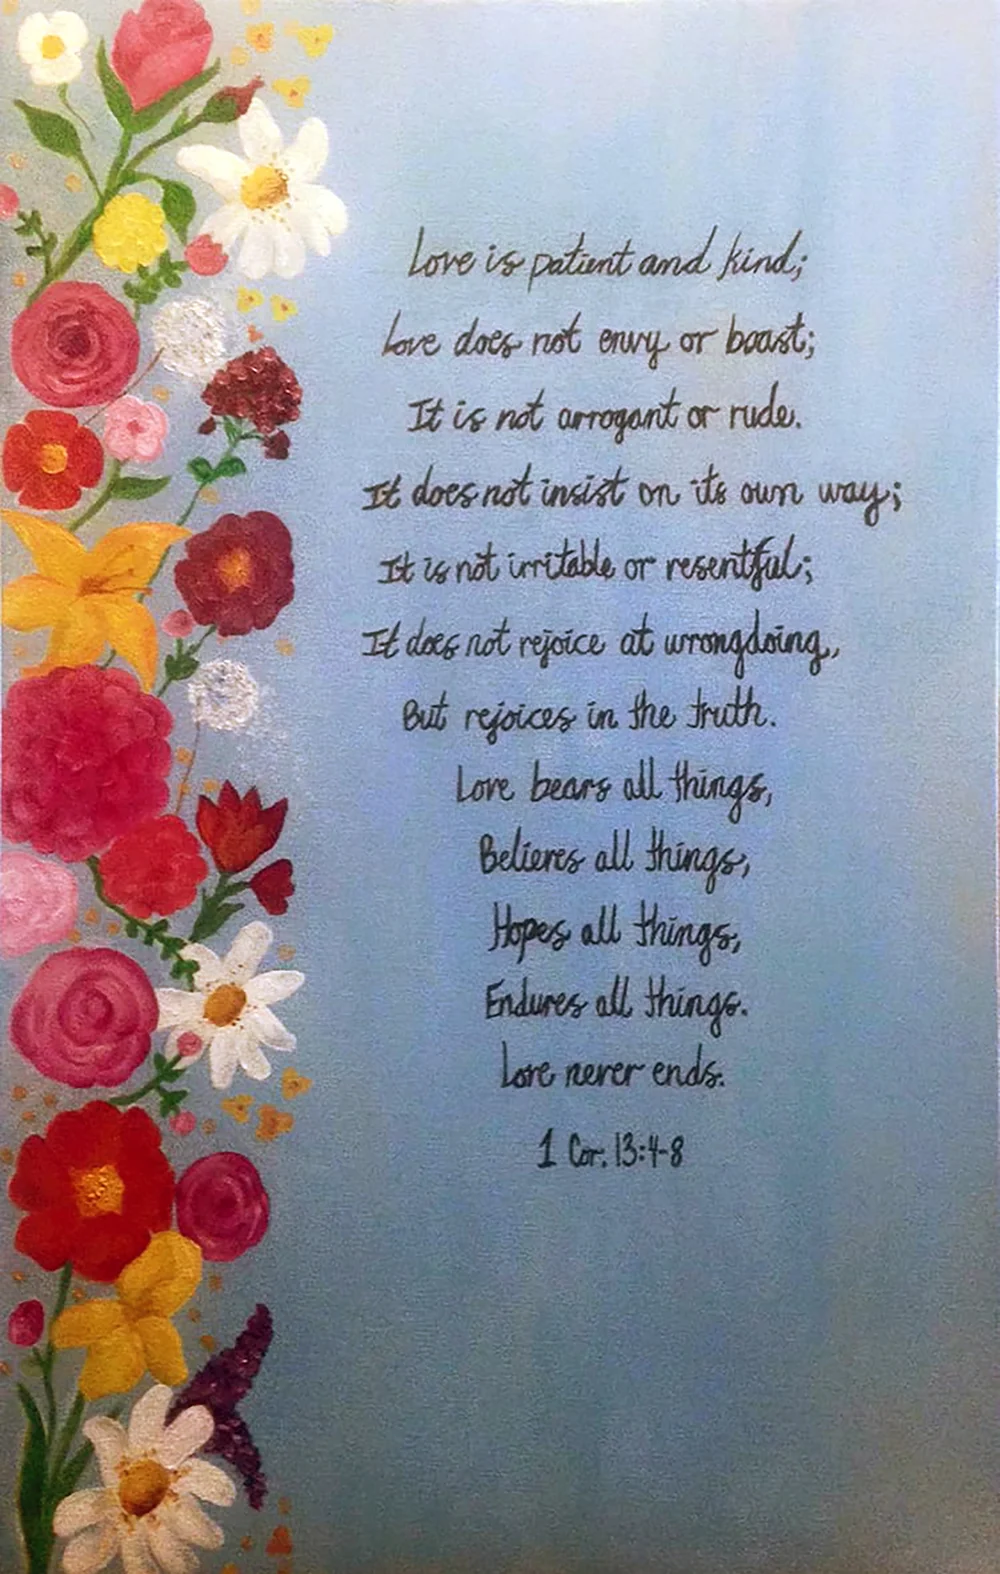 Love is patient and kind;
Love does not envy or boast;
It is not arrogant or rude.
It does not insist on its own way;
It is not irritable or resentful;
It does not rejoice at wrongdoing,
But rejoices in the truth.
Love bears all things,
Believes all things,
Hopes all things,
Endures all things.
Love never ends.
1 Cor. 13:4-8